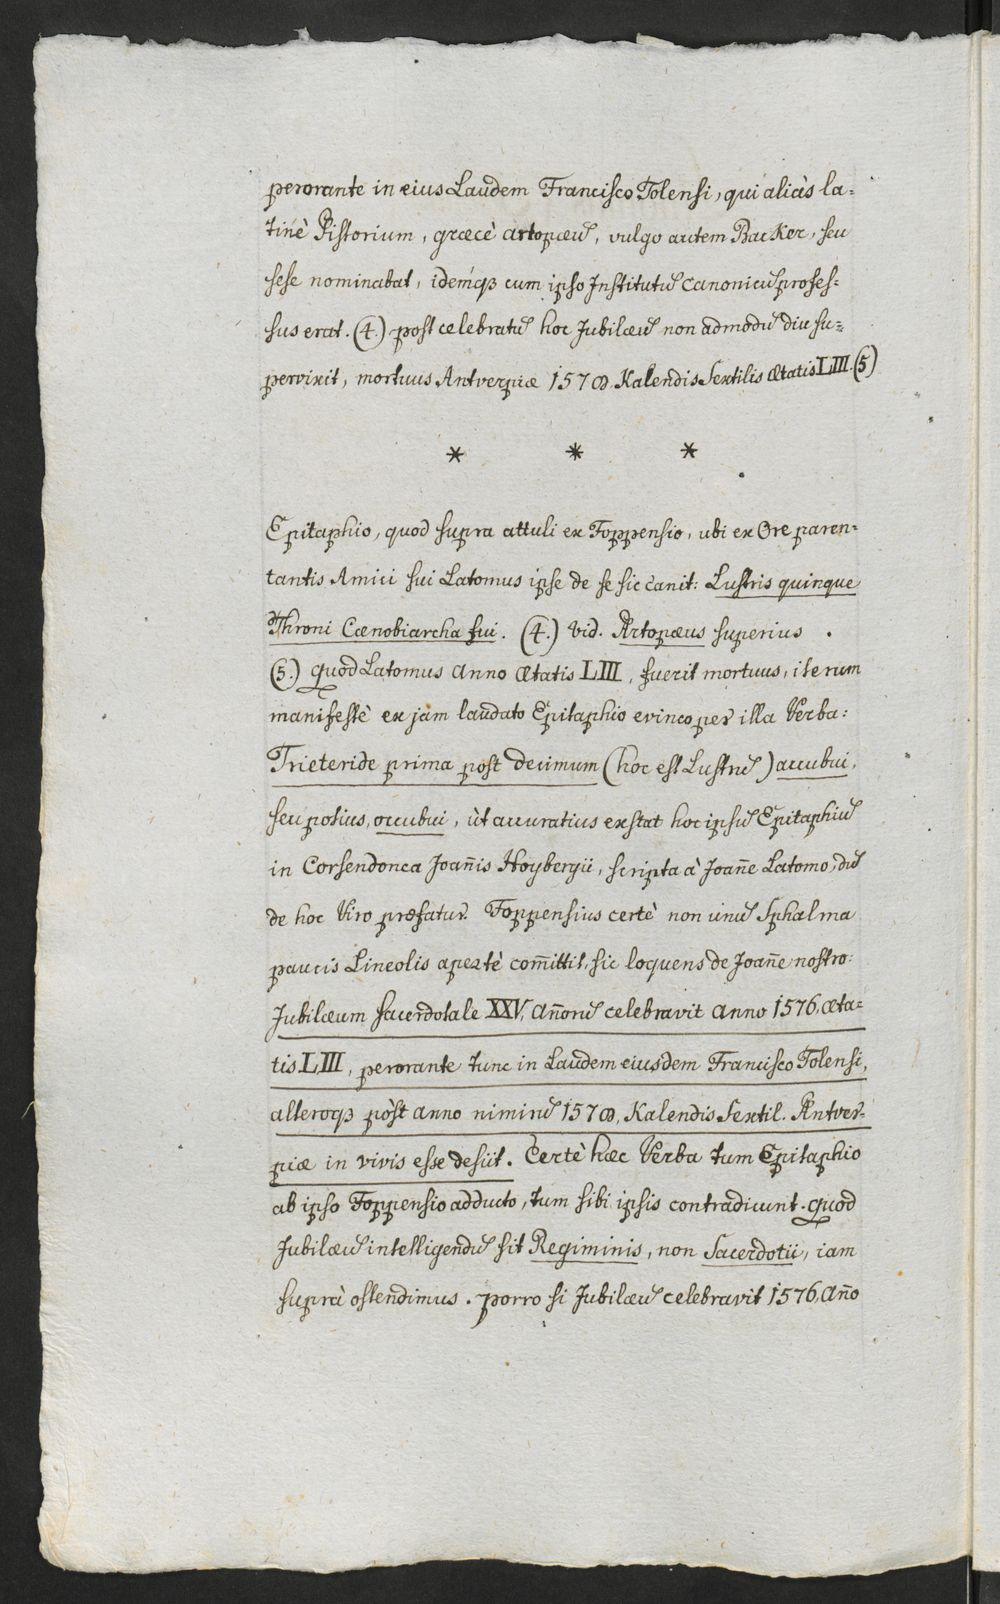 perorante in eius Laudem Francisco Tolensi, qui aliàs la=
tinè Pistorium, græcè artopæũ, vulgo autem Backer, seu
sese nominabat, idemqꝫ cum ipso Institutũ Canonicũ profes=
sus erat. (4.) post celebratũ hoc Jubilæũ non admodũ diu su=
pervixit, mortuus Antverpiæ 1578. Kalendis Sextilis ætatis LIII. (5)
* * *
Epitaphio, quod supra attuli ex Foppensio, ubi ex Ore paren=
tantis Amici sui Latomus ipse de se sic canit: Lustris quinque
Throni Cœnobiarcha fui. (4.) vid. Artopæus superius.
(5.) quod Latomus Anno ætatis LIII, fuerit mortuus, iterum
manifestè ex jam laudato Epitaphio evinco per illa Verba:
Trieteride prima post decimum (hoc est Lustrũ) accubui,
seu potius, occubui, ùt accuratius exstat hoc ipsũ Epitaphiũ
in Corsendonca Joañis Hoybergii, scripta à Joañe Latomo, dũ
de hoc Viro præfatur. Foppensius certè non unũ Sphalma
paucis Lineolis apertè com̃ittit, sic loquens de Joañe nostro:
Jubilæum sacerdotale XXV, Añorũ celebravit Anno 1576, æta=
tis LIII, perorante tunc in Laudem eiusdem Francisco Tolensi,
alteroqꝫ pòst anno nimirũ 1578, Kalendis Sextil. Antver=
piæ in vivis esse desiit. Certè hæc Verba tum Epitaphio
ab ipso Foppensio adducto, tum sibi ipsis contradicunt. quod
Jubilæũ intelligendũ sit Regiminis, non Sacerdotii, iam
suprà ostendimus. porro si Jubilæũ celebravit 1576, Año